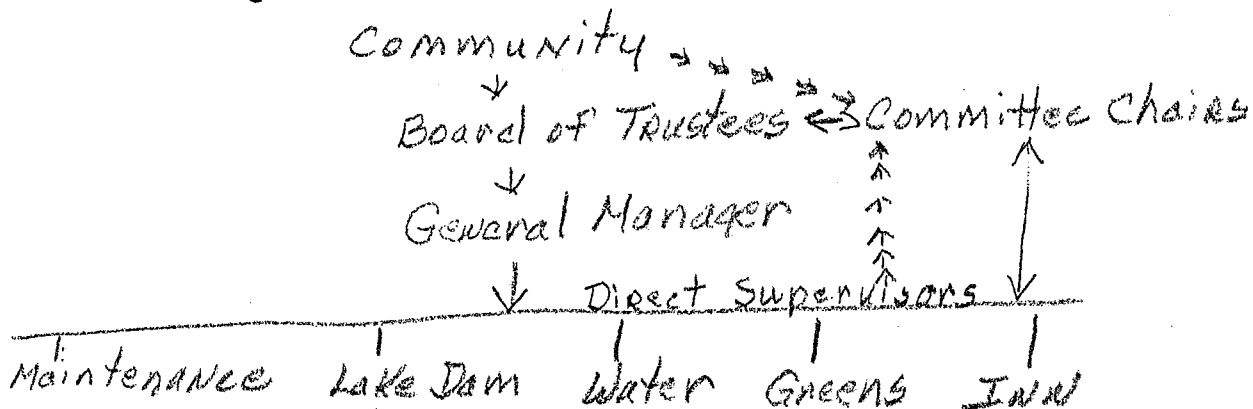 Community
Board of Trustees Committee Chairs
General Manager
Direct Supervisors
Maintenance Lake Dam Water Greens INN